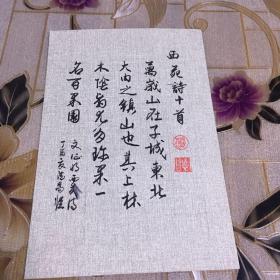 西苑詩十首
萬歲山在子城東北
大内之鎮山也其上林
木陰翳尤多珍果一
名百果園
文徵明西苑詩
丁酉亥馮昌恒